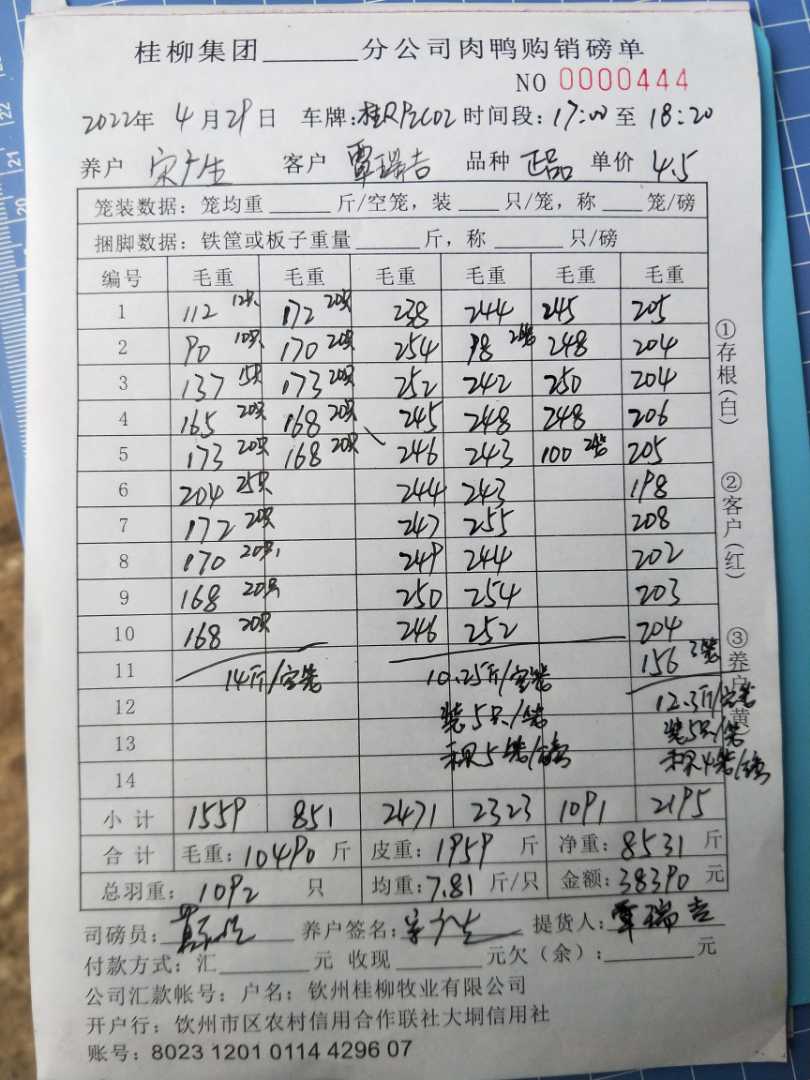 桂柳集团______分公司肉鸭购销磅单
NO 0000444
2022年 4月29日 车牌:桂R 时间段:17:00至18:20
养户 宋广生 客户 覃瑞吉 品种 正品 单价 4.5
笼装数据:笼均重______斤/空笼,装____只/笼,称____笼/磅
捆脚数据:铁筐或板子重量______斤,称______只/磅
编号 毛重 毛重 毛重 毛重 毛重 毛重
1 112 12只 172 20只 238 244 245 205
2 90 10只 170 20只 254 98 2笼 248 204
3 137 15只 173 20只 252 242 250 204
4 165 20只 168 20只 245 248 248 206
5 173 20只 168 20只 246 243 100 2笼 205
6 204 25只 244 243 198
7 172 20只 247 255 208
8 170 20只 249 244 202
9 168 20只 250 254 203
10 168 20只 246 252 204
11 14斤/空笼 10.25斤/空笼 156 3笼
12 装5只/笼 12.3斤/空笼
13 称5笼/磅 装5只/笼
14 称4笼/磅
小计 1559 851 2471 2323 1091 2195
合计 毛重:10490斤 皮重:1959斤 净重:8531斤
总羽重:1092只 均重:7.81斤/只 金额:38390元
司磅员: 养户签名:宋广生 提货人:覃瑞吉
付款方式:汇______元 收现______元欠(余):______元
公司汇款帐号:户名:钦州桂柳牧业有限公司
开户行:钦州市区农村信用合作联社大垌信用社
账号:8023 1201 0114 4296 07
①存根(白)
②客户(红)
③养户(黄)